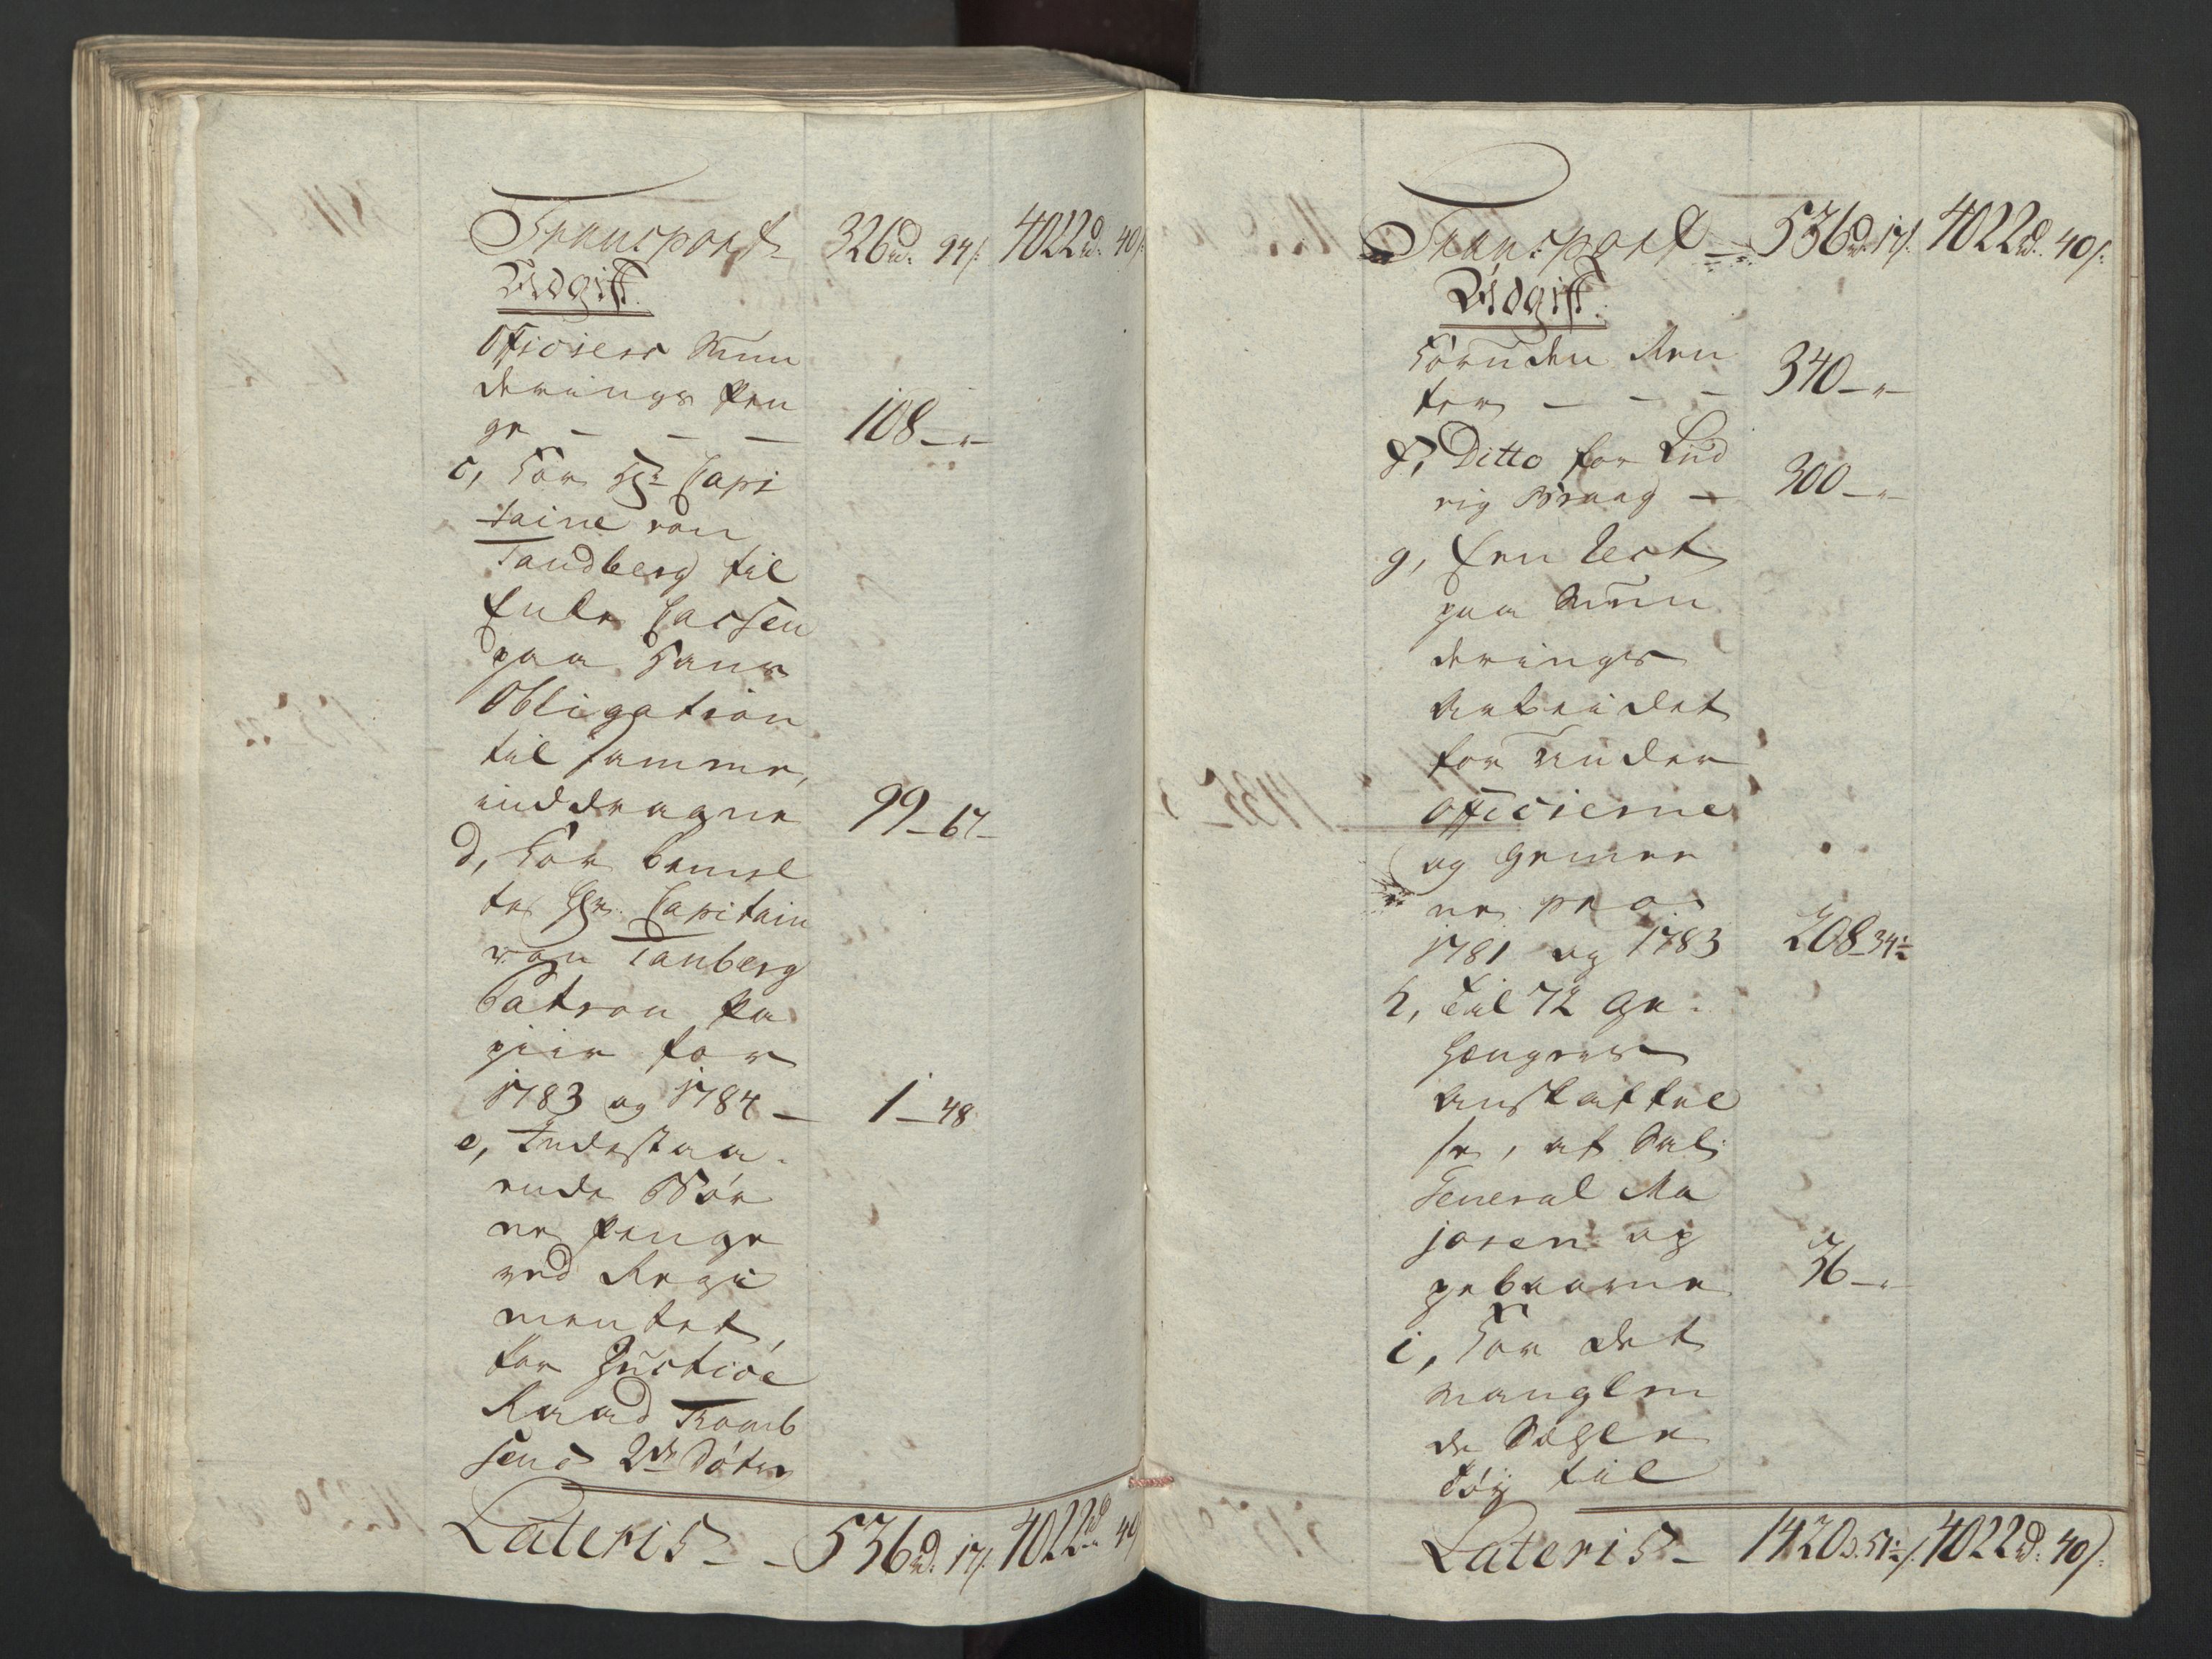 Transport 326 rd. 94 s. 4022 rd. 40 s.
Udgift.
Officiers Mun
derings Pen
ge — — — 108 - " -
c, For Hr. Capi
taine von
Tandberg til
Enke Cassen
paa Hans
Obligation
til samme,
inddragne 99 - 67 -
d, For bemel
te Hr. Capitain
von Tanberg
Patron Pa
piir for
1783 og 1784 — 1 - 48
e, Indestaa-
ende Bør
ne Penge
ved Regi
mentet,
for Justice
Raad
sens 2de Døtre
Lateris — 536 rd. 17 s. 4022 rd. 40 s.
Transport — 536 rd. 17 s. 4022 rd. 40 s.
Udgift.
foruden Ren
ter — — — 340 - " -
f, Ditto for Lud
vig — 300 - " -
g, En Rest
paa Mun
derings
Arbeidet
for Under
Officierne
og Gemee
ne pro
1781 og 1783 208 - 34½
h, Til 72 Ge-
hængers
Anskaffel
se, af Sal:
General Ma
joren op
pebaarne 36 - " -
i, For det
manglen
de
Tøy til
Lateris — 1420 rd. 51½ s. 4022 rd. 40 s.